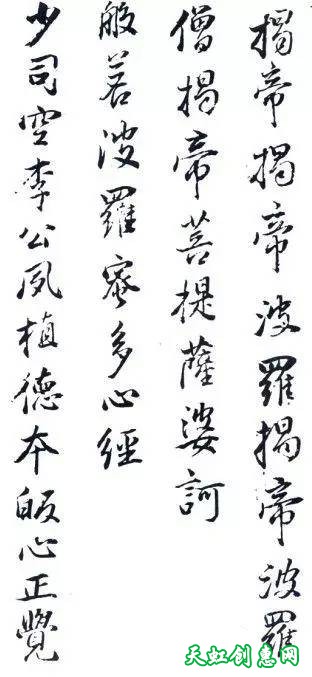 揭帝揭帝波羅揭帝波羅
僧揭帝菩提薩婆訶
般若波羅蜜多心經
少司空李公夙植德本皈心正覺
天虹创惠网